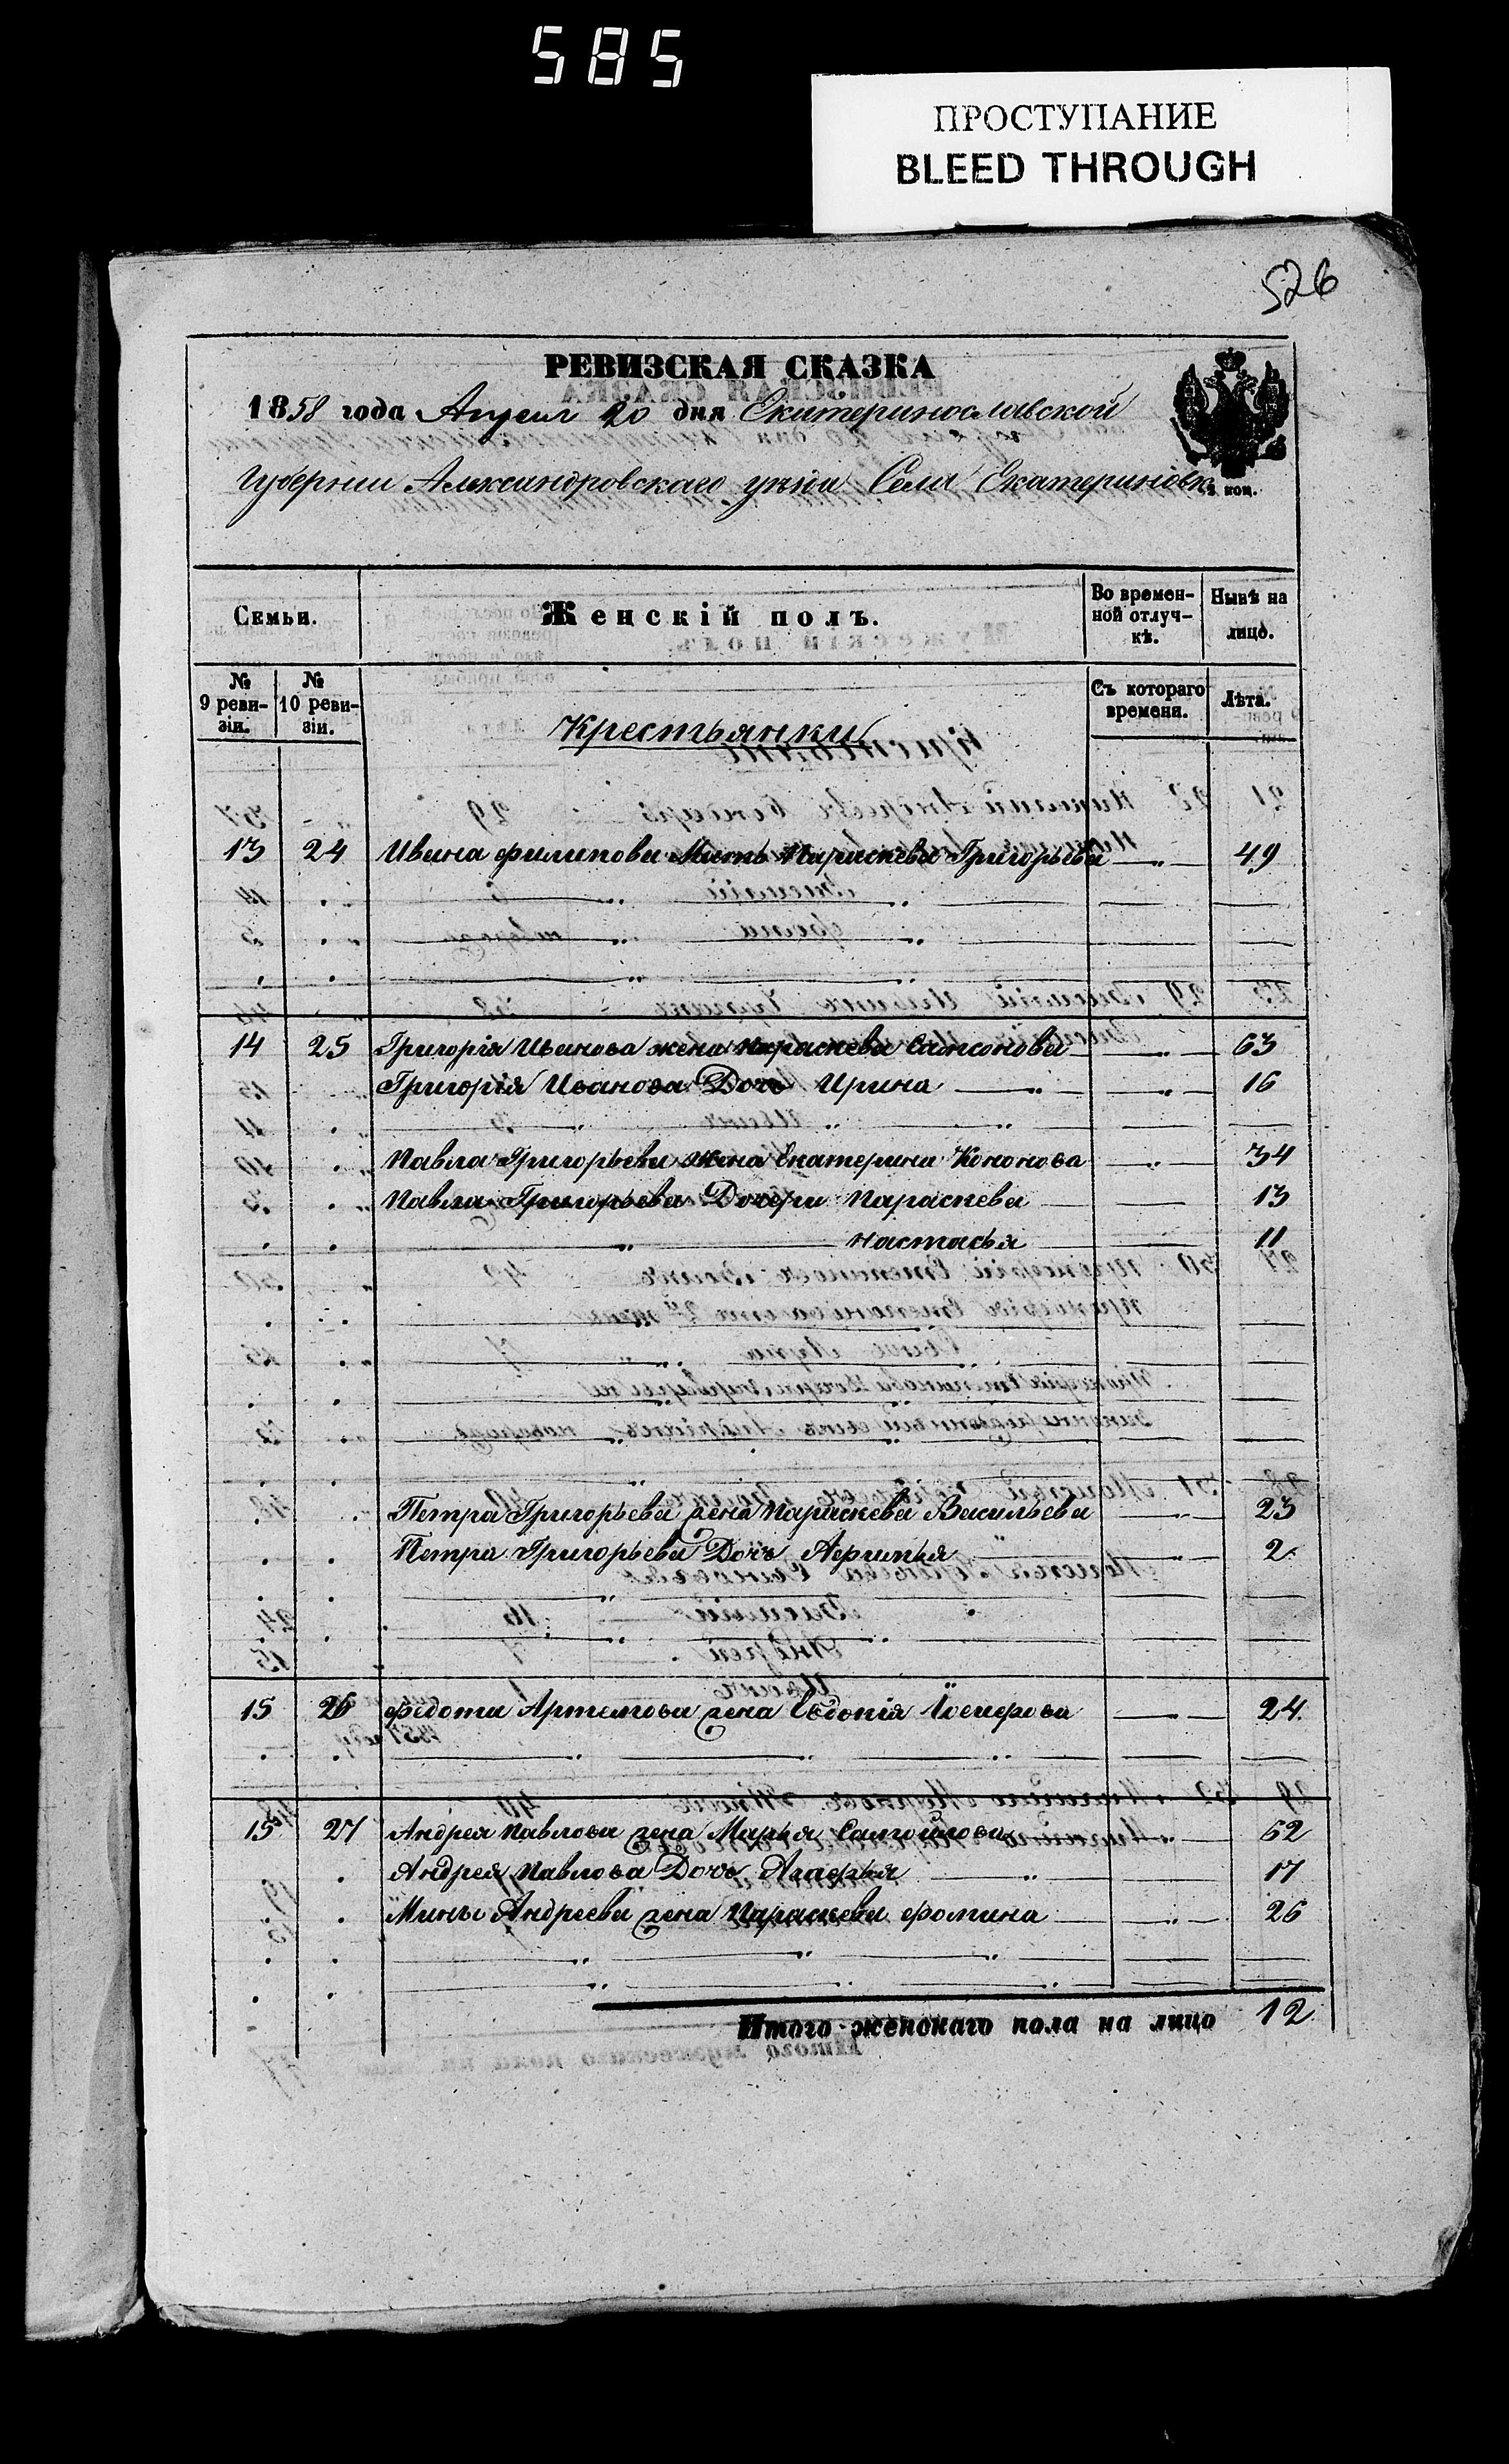 585
ПРОСТУПАНИЕ
BLEED THROUGH
526
РЕВИЗСКАЯ СКАЗКА
1858 года Апреля 20 дня Екатеринославской
Губернии Александровскаго уѣзда Села Екатериновк
коп.
Семьи. Женскій полъ. Во времен-ной отлуч-кѣ. Нынѣ на лицо.
№ 9 реви-зіи. № 10 реви-зіи. Съ котораго времени. Лѣта.
Крестьянки
13 24 Ивана Филипова Мать Параскева Григорьева 49
14 25 Григорія Иванова жена Параскева Самсонова 63
Григорія Иванова Дочь Ирина 16
Павла Григорьева жена Екатерина Кононова 34
Павла Григорьева Дочери Параскева 13
Настасья 11
Петра Григорьева жена Параскева Васильева 23
Петра Григорьева Дочь 2
15 26 Федота Артемова жена Евдокія 24
15 27 Андрея Павлова жена Марья Самойлова 62
Андрея Павлова Дочь Агафья 17
Мины Андреева жена Параскева Фомина 26
Итого женскаго пола на лицо 12